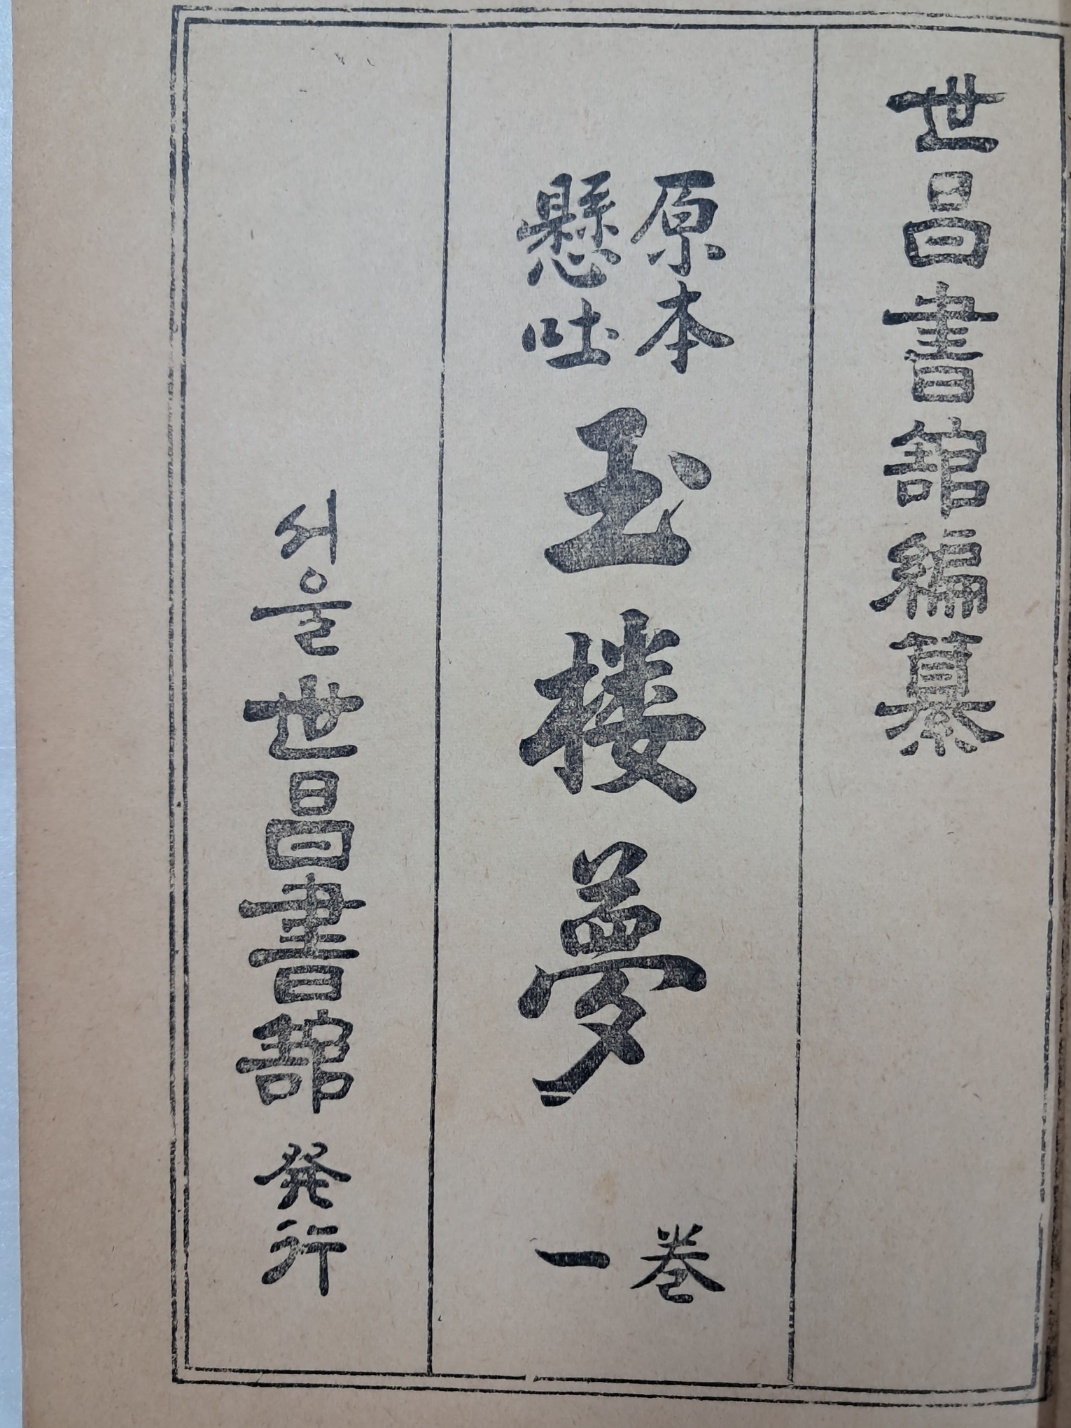 世昌書館編纂
原本
懸吐
玉楼夢
巻
一
서울 世昌書館 発行